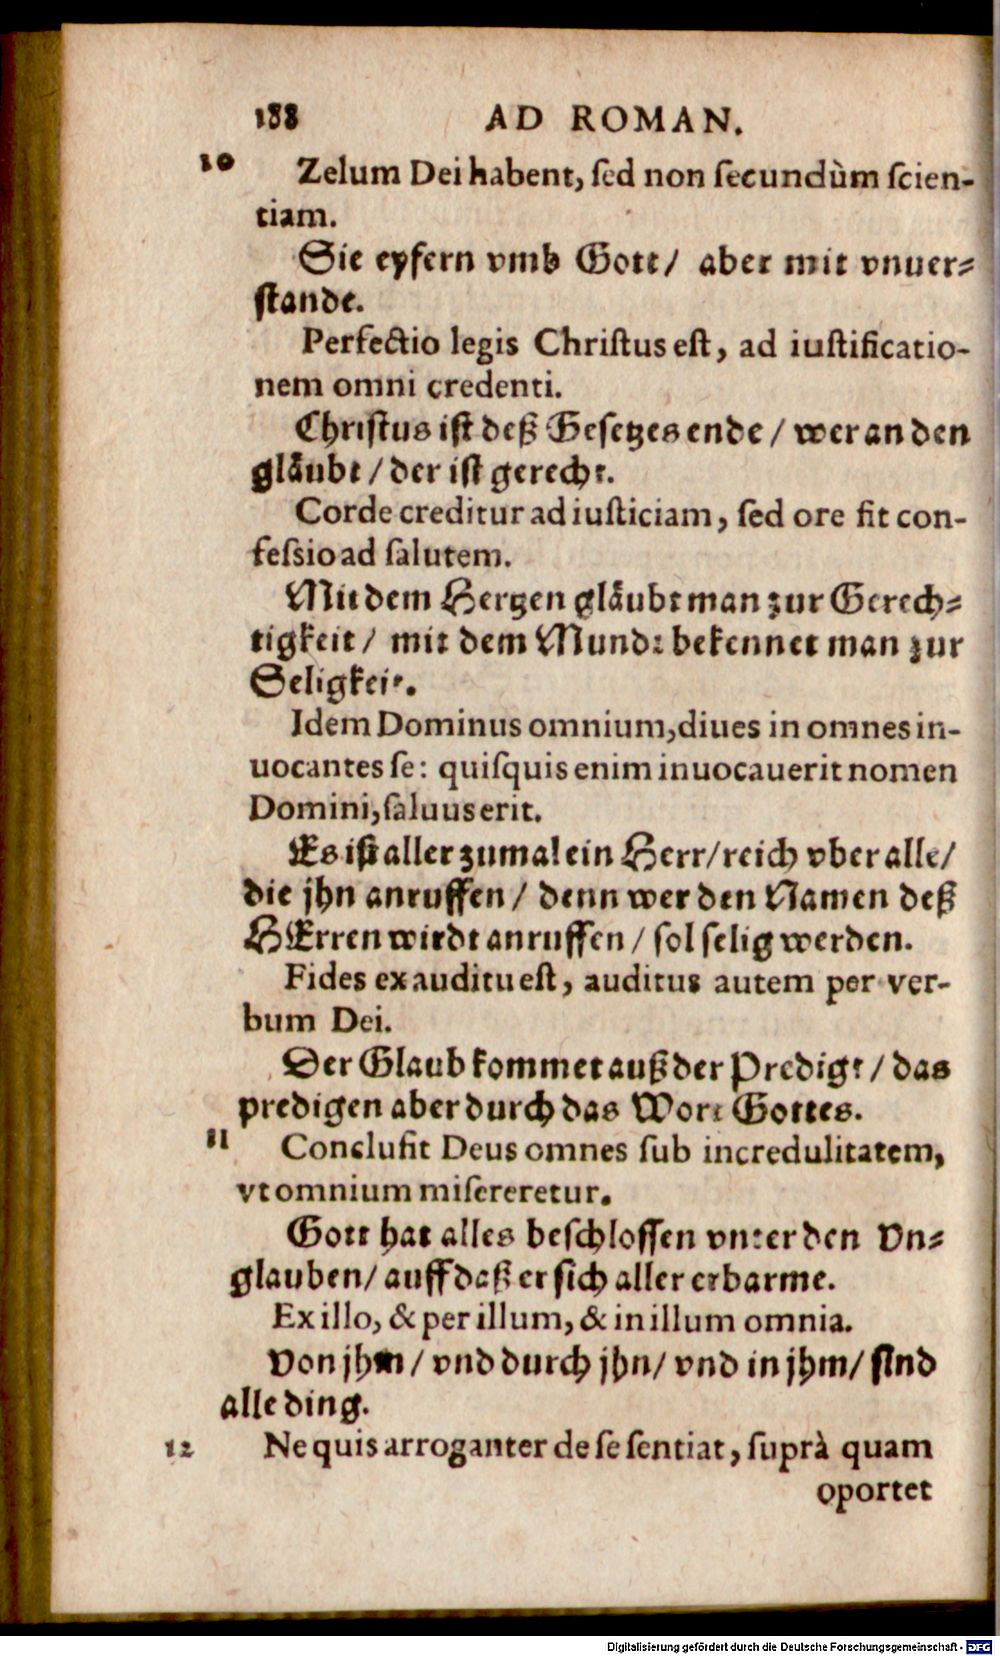 188 AD ROMAN.
10 Zelum Dei habent, sed non secundùm scien-
tiam.
Sie eyfern vmb Gott/ aber mit vnuer-
stande.
Perfectio legis Christus est, ad iustificatio-
nem omni credenti.
Christus ist deß Gesetzes ende / wer an den
gläubt / der ist gerecht.
Corde creditur ad iusticiam, sed ore fit con-
fessio ad salutem.
Mit dem Hertzen gläubt man zur Gerech-
tigkeit / mit dem Munde bekennet man zur
Seligkeit.
Idem Dominus omnium, diues in omnes in-
uocantes se: quisquis enim inuocauerit nomen
Domini, saluus erit.
Es ist aller zumal ein Herr/ reich vber alle/
die jhn anruffen / denn wer den Namen deß
HErren wirdt anruffen / sol selig werden.
Fides ex auditu est, auditus autem per ver-
bum Dei.
Der Glaub kommet auß der Predigt / das
predigen aber durch das Wort Gottes.
11 Conclusit Deus omnes sub incredulitatem,
vt omnium misereretur.
Gott hat alles beschlossen vnter den Vn-
glauben/ auff daß er sich aller erbarme.
Ex illo, & per illum, & in illum omnia.
Von jhm / vnd durch jhn/ vnd in jhm/ sind
alle ding.
12 Ne quis arroganter de se sentiat, suprà quam
oportet
Digitalisierung gefördert durch die Deutsche Forschungsgemeinschaft - DFG